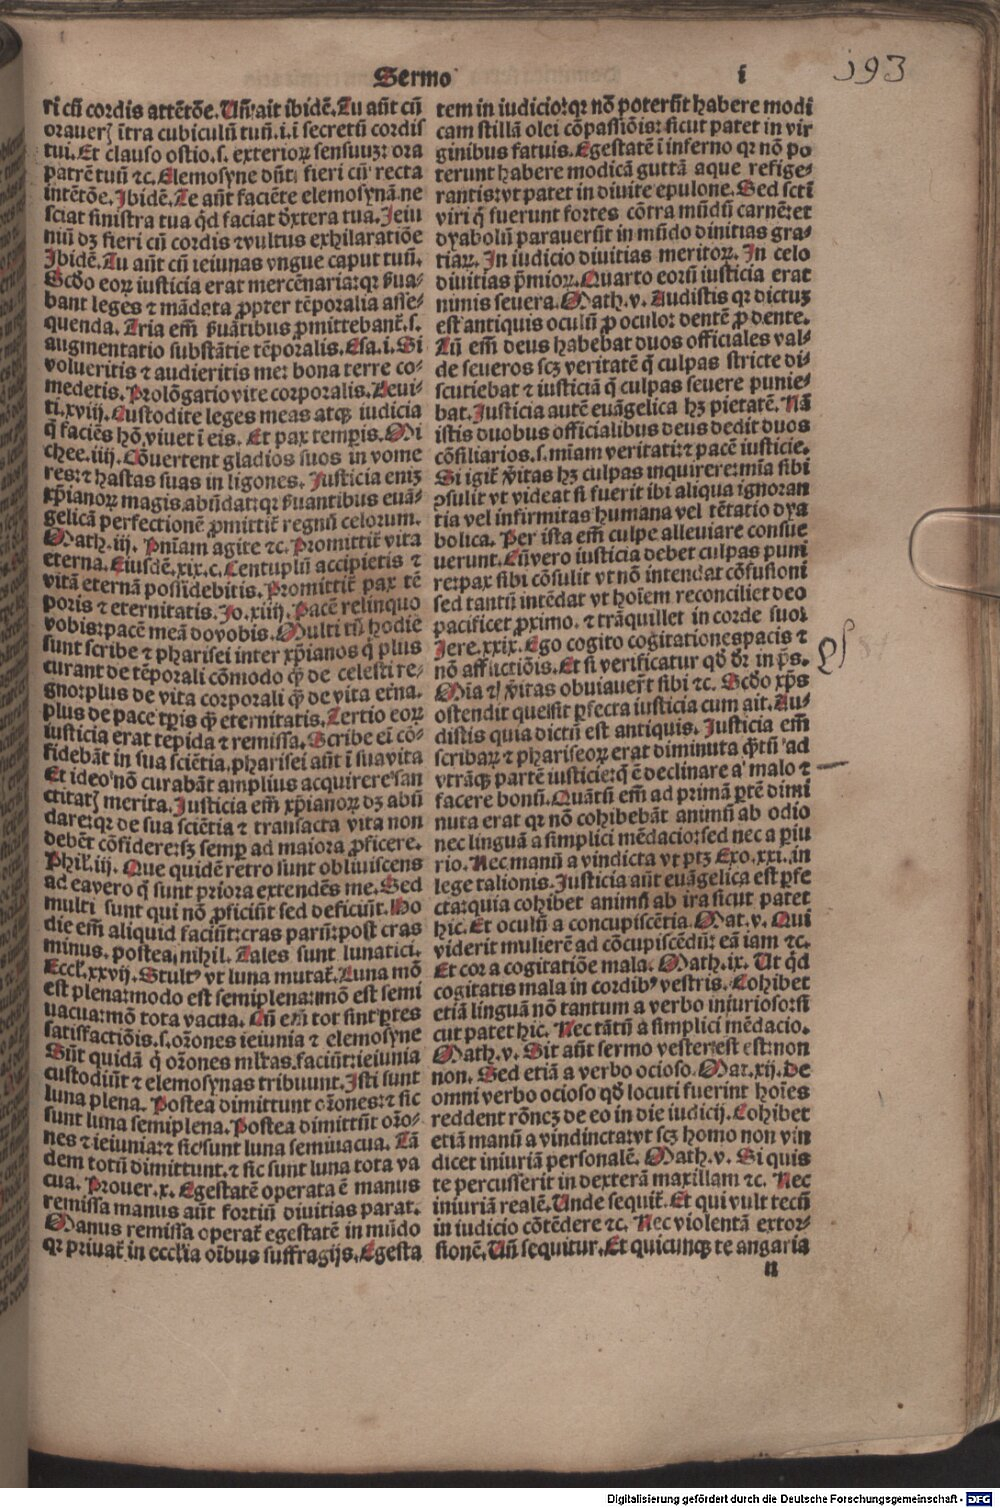 Sermo
i
193
ri cũ cordis attẽtõe. Uñ ait ibidẽ. Tu aũt cũ
oraueꝝ ĩtra cubiculũ tuũ .i. ĩ secretũ cordis
tui. Et clauso ostio .s. exterioꝝ sensuuʒ: ora
patrẽ tuũ ⁊c. Elemosyne dñt fieri cũ recta
intẽtõe. Ibidẽ. Te aũt faciẽte elemosynã ne
sciat sinistra tua qd̛ faciat dextera tua. Ieiu
niũ dʒ fieri cũ cordis ⁊ vultus exhilaratiõe
Ibidẽ. Tu aũt cũ ieiunas vnge caput tuũ.
Scd̛o eoꝝ iusticia erat mercẽnaria: qꝛ ẜua-
bant leges ⁊ mãdata ꝓpter tẽporalia asse-
quenda. Tria em̃ ẜuãtibus ꝓmittebant̛ .s.
augmentatio substãtie tẽporalis. Esa. i. Si
volueritis ⁊ audieritis me: bona terre co-
medetis. Prolõgatio vite corporalis. Leui-
ti. xviij. Custodite leges meas atqʒ iudicia
q̃ faciẽs hõ, viuet ĩ eis. Et pax temꝑis. Mi
chee. iiij. Cõuertent gladios suos in vome
res: ⁊ hastas suas in ligones. Iusticia emʒ
xp̃ianoꝝ magis abũdat: qꝛ ẜuantibus euã-
gelicã perfectionẽ ꝓmittit̛ regnũ celorum.
Math. iij. Pnĩam agite ⁊c. Promittit̛ vita
eterna. Eiusdẽ. xix. c. Centuplũ accipietis ⁊
vitã eternã possidebitis. Promittit̛ pax tẽ
poris ⁊ eternitatis. Jo. xiiij. Pacẽ relinquo
vobis: pacẽ meã do vobis. Multi tñ hodie
sunt scribe ⁊ pharisei inter xp̃ianos q̃ plus
curant de tẽporali cõmodo q̃ꝫ de celesti re-
gno: plus de vita corporali q̃ꝫ de vita etna.
plus de pace tꝑis q̃ꝫ eternitatis. Tertio eoꝝ
iusticia erat tepida ⁊ remissa. Scribe ei cõ-
fidebãt in sua sciẽtia, pharisei aũt ĩ sua vita
Et ideo nõ curabãt amplius acquirere san
ctitatꝫ merita. Iusticia em̃ xp̃ianoꝝ dʒ abũ
dare: qꝛ de sua sciẽtia ⁊ transacta vita non
debẽt cõfidere: sʒ semꝑ ad maiora ꝓficere.
Phil̛. iij. Que quidẽ retro sunt obliuiscens
ad ea vero q̃ sunt priora extendẽs me. Sed
multi sunt qui nõ ꝓficiũt sed deficiũt. Ho
die em̃ aliquid faciũt: cras parũ: post cras
minus. postea nihil. Tales sunt lunatici.
Eccl̛. xxvij. Stultꝰ vt luna mutat̛. Luna mõ
est plena: modo est semiplena: mõ est semi
uacua: mõ tota vacua. Cũ em̃ tot sint ꝑtes
satisfactiõis .s. orõnes ieiunia ⁊ elemosyne
Sũt quidã q̃ orõnes ml̛tas faciũt: ieiunia
custodiũt ⁊ elemosynas tribuunt. Isti sunt
luna plena. Postea dimittunt orõnes: ⁊ sic
sunt luna semiplena. Postea dimittũt orõ-
nes ⁊ ieiunia: ⁊ sic sunt luna semiuacua. Tã
dem totũ dimittunt. ⁊ sic sunt luna tota va
cua. Prouer. x. Egestatẽ operata ẽ manus
remissa manus aũt fortiũ diuitias parat.
Manus remissa operat̛ egestatẽ in mũdo
qꝛ priuat̛ in eccl̛ia oĩbus suffragijs. Egesta
tem in iudicio: qꝛ nõ poterũt habere modi
cam stillã olei cõpassiõis: sicut patet in vir
ginibus fatuis. Egestatẽ ĩ inferno qꝛ nõ po
terunt habere modicã guttã aque refige-
rantis: vt patet in diuite epulone. Sed sctĩ
viri q̃ fuerunt fortes cõtra mũdũ carnẽ: et
dyabolũ parauerũt in mũdo diuitias gra-
tiaꝝ. In iudicio diuitias meritoꝝ. In celo
diuitias p̃mioꝝ. Quarto eorũ iusticia erat
nimis seuera. Math. v. Audistis qꝛ dictuʒ
est antiquis oculũ ꝓ oculo: dentẽ ꝓ dente.
Tũ em̃ deus habebat duos officiales val-
de seueros scʒ veritatẽ q̃ culpas stricte di-
scutiebat ⁊ iusticiã q̃ culpas seuere punie-
bat. Iusticia autẽ euãgelica hʒ pietatẽ. Nã
istis duobus officialibus deus dedit duos
cõsiliarios .s. miam veritati: ⁊ pacẽ iusticie.
Si igit̛ ṽitas hʒ culpas inquirere: mĩa sibi
ꝯsulit vt videat si fuerit ibi aliqua ignoran
tia vel infirmitas humana vel tẽtatio dya
bolica. Per ista em̃ culpe alleuiare consue
uerunt. Cũ vero iusticia debet culpas puni
re: pax sibi cõsulit vt nõ intendat cõfusioni
sed tantũ intẽdat vt hoĩem reconciliet deo
pacificet ꝓximo. ⁊ trãquillet in corde suo:
Jere. xxix. Ego cogito cogitationes pacis ⁊
nõ afflictiõis. Et sĩ verificatur qd̛ dr̃ in ps̃.
Mia ⁊ ṽitas obuiauer̃t sibi ⁊c. Scd̛o xp̃s
ostendit que sit ꝑfecta iusticia cum ait. Au-
distis quia dictũ est antiquis. Iusticia em̃
scribaꝝ ⁊ phariseoꝝ erat diminuta q̃tũ ad
vtrãqʒ partẽ iusticie: q̃ ẽ declinare a malo ⁊
facere bonũ. Quãtũ em̃ ad primã ꝑtẽ dimi
nuta erat qꝛ nõ cohibebãt animũ ab odio
nec linguã a simplici mẽdacio: sed nec a ꝑiu
rio. Nec manũ a vindicta vt ptʒ Exo. xxi. in
lege talionis. Iusticia aũt euãgelica est ꝑfe
cta: quia cohibet animũ ab ira sicut patet
hic. Et oculũ a concupiscẽtia. Mat. v. Qui
viderit mulierẽ ad cõcupiscẽdũ: eã iam ⁊c.
Et cor a cogitatiõe mala. Math. ix. Ut qd̛
cogitatis mala in cordibꝰ vestris. Cohibet
etiã linguã nõ tantum a verbo iniurioso: si
cut patet hic. Nec tãtũ a simplici mẽdacio.
Math. v. Sit aũt sermo vester: est est: non
non. Sed etiã a verbo ocioso. Mar. xij. De
omni verbo ocioso qd̛ locuti fuerint hoĩes
reddent rõneʒ de eo in die iudicij. Cohibet
etiã manũ a vindincta: vt scʒ homo non vin
dicet iniuriã personalẽ. Math. v. Si quis
te percusserit in dexterã maxillam ⁊c. Nec
iniuriã realẽ. Unde sequit̛. Et qui vult tecũ
in iudicio cõtẽdere ⁊c. Nec violentã extor-
sionẽ. Uñ sequitur. Et quicunqʒ te angaria
n
Digitalisierung gefördert durch die Deutsche Forschungsgemeinschaft - DFG